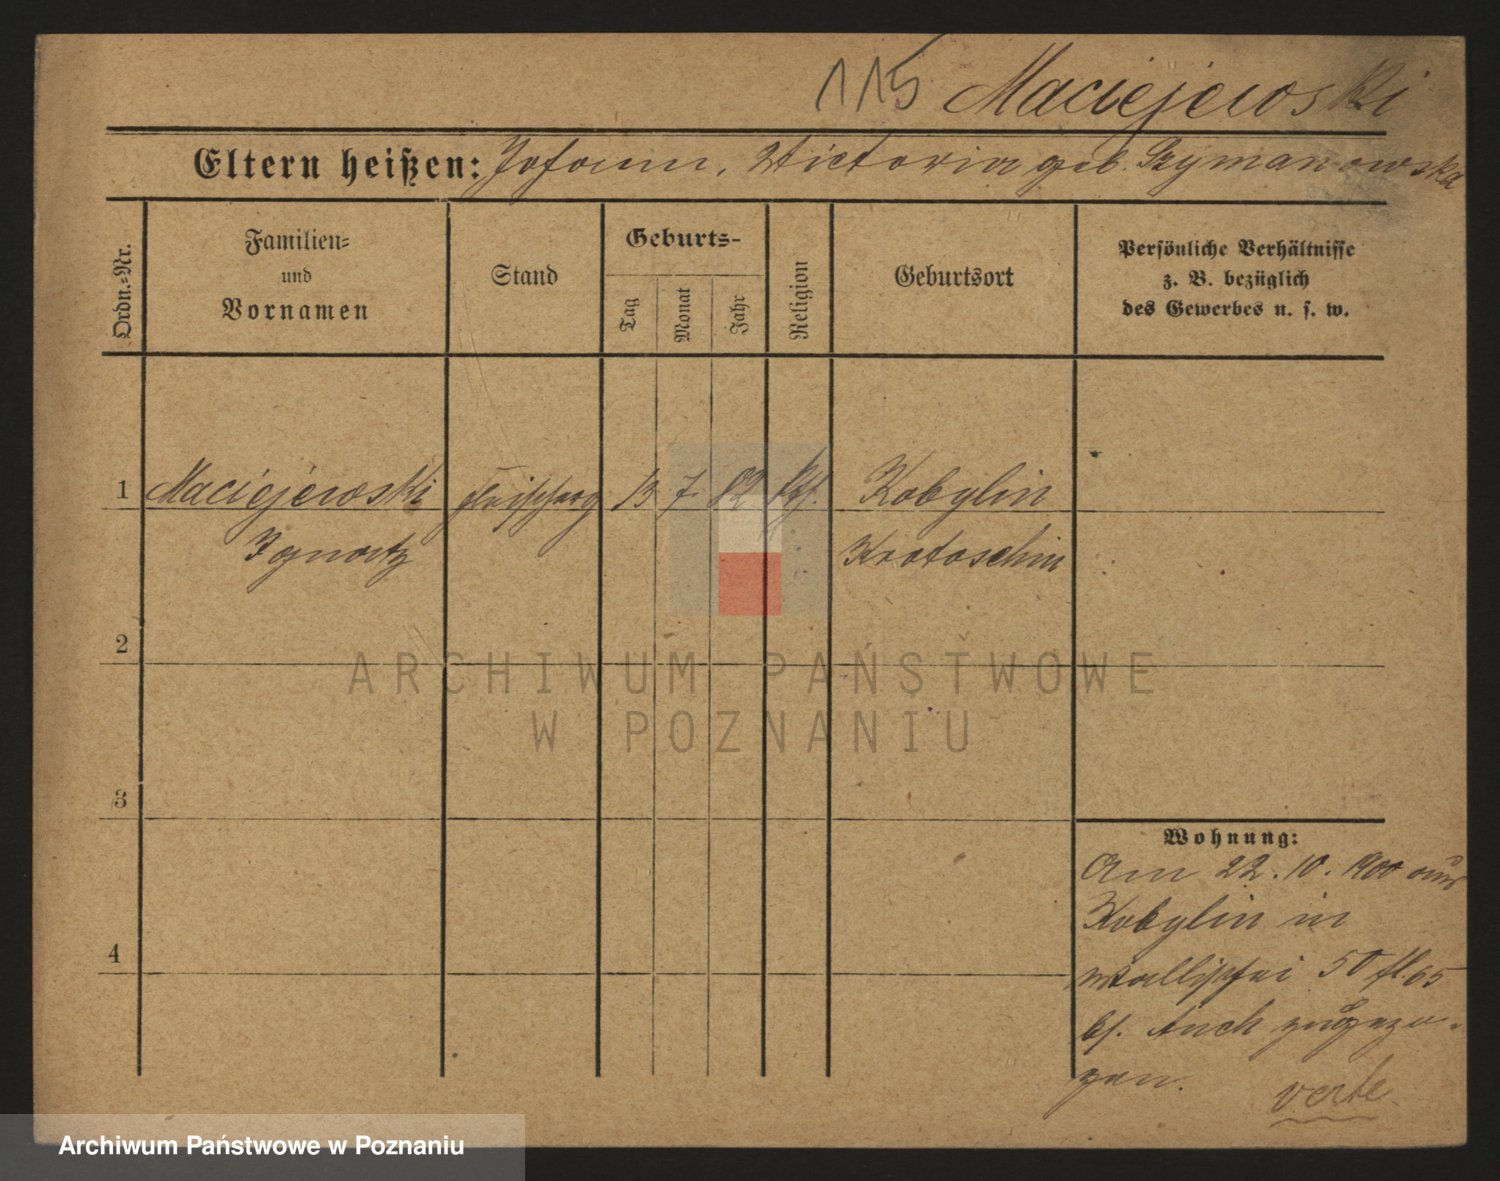 115 Maciejewski
Eltern heißen: Johann, Victoria geb. Szymanowska
Ordn.-Nr.
Familien-
und
Vornamen
Stand
Geburts-
Tag
Monat
Jahr
Religion
Geburtsort
Persönliche Verhältnisse
z. B. bezüglich
des Gewerbes u. s. w.
1 Maciejewski 13 7. 82 kth. Kobylin
Ignatz Krotoschin
2
3
4
Wohnung:
Am 22. 10. 1900 aus
Kobylin in
Wallischei 50 fl. 65
bei zugezo-
gen.
verte
ARCHIWUM PAŃSTWOWE
W POZNANIU
Archiwum Państwowe w Poznaniu